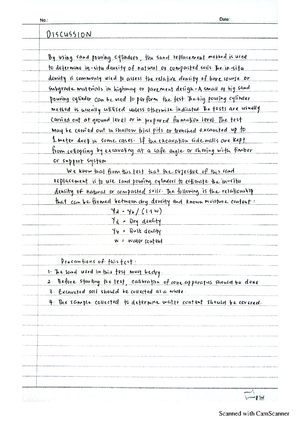 No:
Date:
DISCUSSION
By using sand pouring cylinders, the sand replacement method is used
to determine in-situ density of natural or compacted soils. The in-situ
density is commonly used to assess the relative density of base course or
subgrade materials in highway or pavement design. A small or big sand
pouring cylinder can be used to perform the test. The big pouring cylinder
method is usually utilised unless otherwise indicated. The tests are usually
carried out at ground level or in prepared formation level. The test
may be carried out in shallow trial pits or trenches excavated up to
1 meter deep in some cases. If the excavation sidewalls are kept
from collapsing by excavating at a safe angle or shoring with timber
or support system
We know that from this test that the objective of this sand
replacement is to use sand pouring cylinders to estimate the in-situ
density of natural or compacted soil. The following is the relationship
that can be formed between dry density and known moisture content:
γd = γb / (1+w)
γd = Dry density
γb = Bulk density
w = Water content
Precautions of this test:
1. The sand used in this test must be dry.
2. Before starting the test, calibration of cone apparatus should be done
3. Excavated soil should be collected as a whole
4. The sample collected to determine water content should be covered.
Scanned with CamScanner